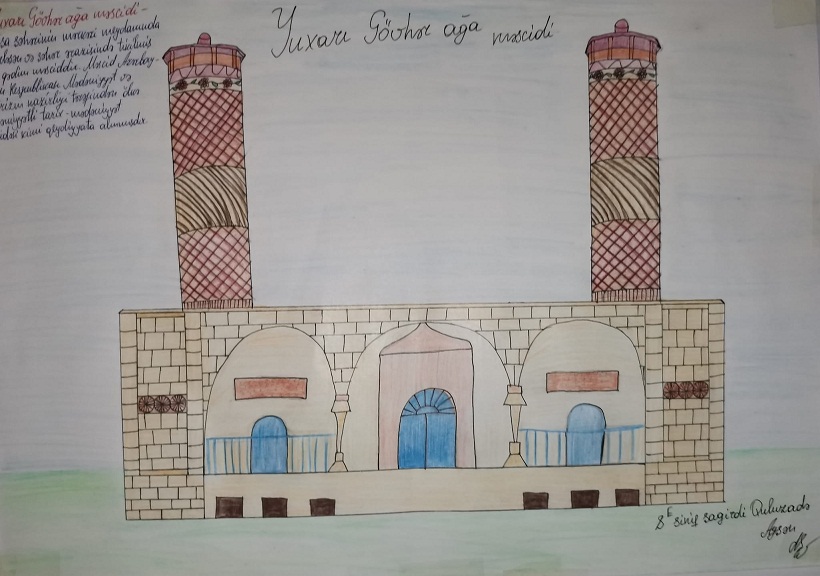 Yuxarı Gövhər ağa məscidi
Gövhər ağa məscidi-
şəhərinin mərkəzi meydanında
və şəhər ərazisində tikilmiş
qədim məsciddir. Məscid Azərbay-
Respublikası Mədəniyyət və
nazirliyi tərəfindən ölkə
əhəmiyyətli tarix-mədəniyyət
kimi qeydiyyata alınmışdır.
8ᴱ sinif şagirdi Quluzadə
Aysu